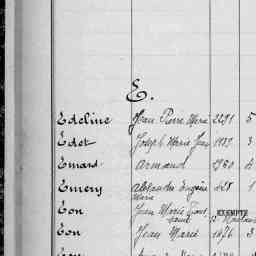 E.
Edeline Jean Pierre Marie 2291 5
Edet Joseph Marie Jean 1939 3
Emard Armand 1760 4
Emery Alexandre Eugène 428 1
Marie
Eon Jean Marie EXEMPTÉ
Eon Jean Marie 1476 3